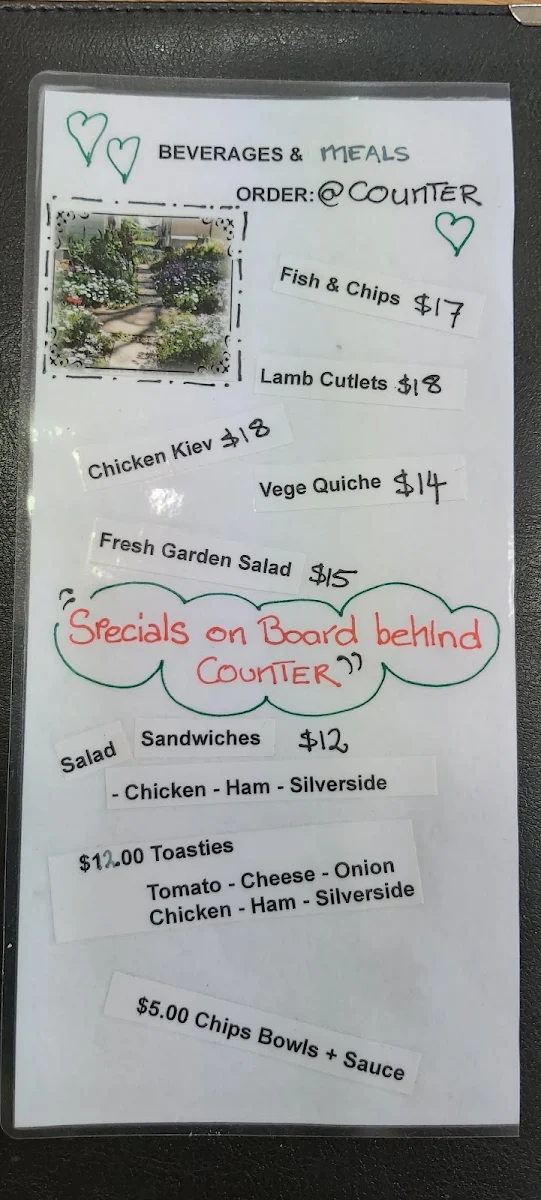 BEVERAGES & MEALS
ORDER:@COUNTER
Fish & Chips $17
Lamb Cutlets $18
Chicken Kiev $18
Vege Quiche $14
Fresh Garden Salad $15
"Specials on Board behInd
COUNTER"
Salad Sandwiches $12
- Chicken - Ham - Silverside
$12.00 Toasties
Tomato - Cheese - Onion
Chicken - Ham - Silverside
$5.00 Chips Bowls + Sauce